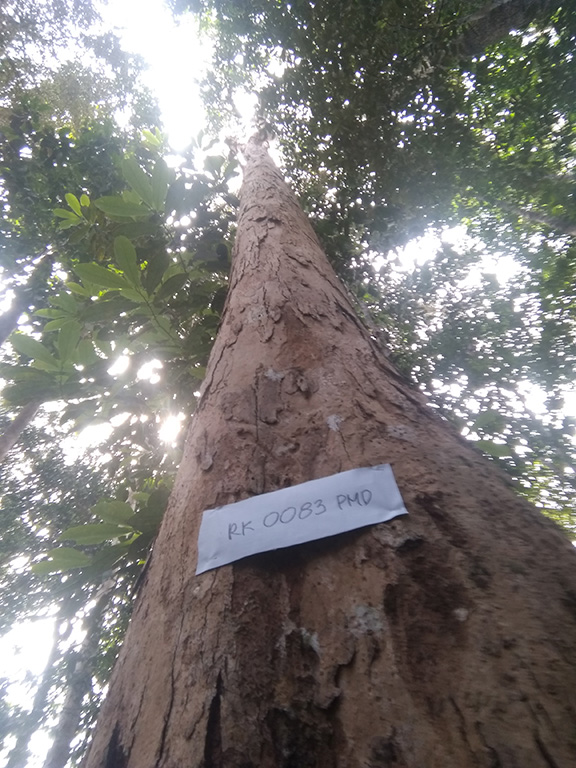 RK 0083 PMD